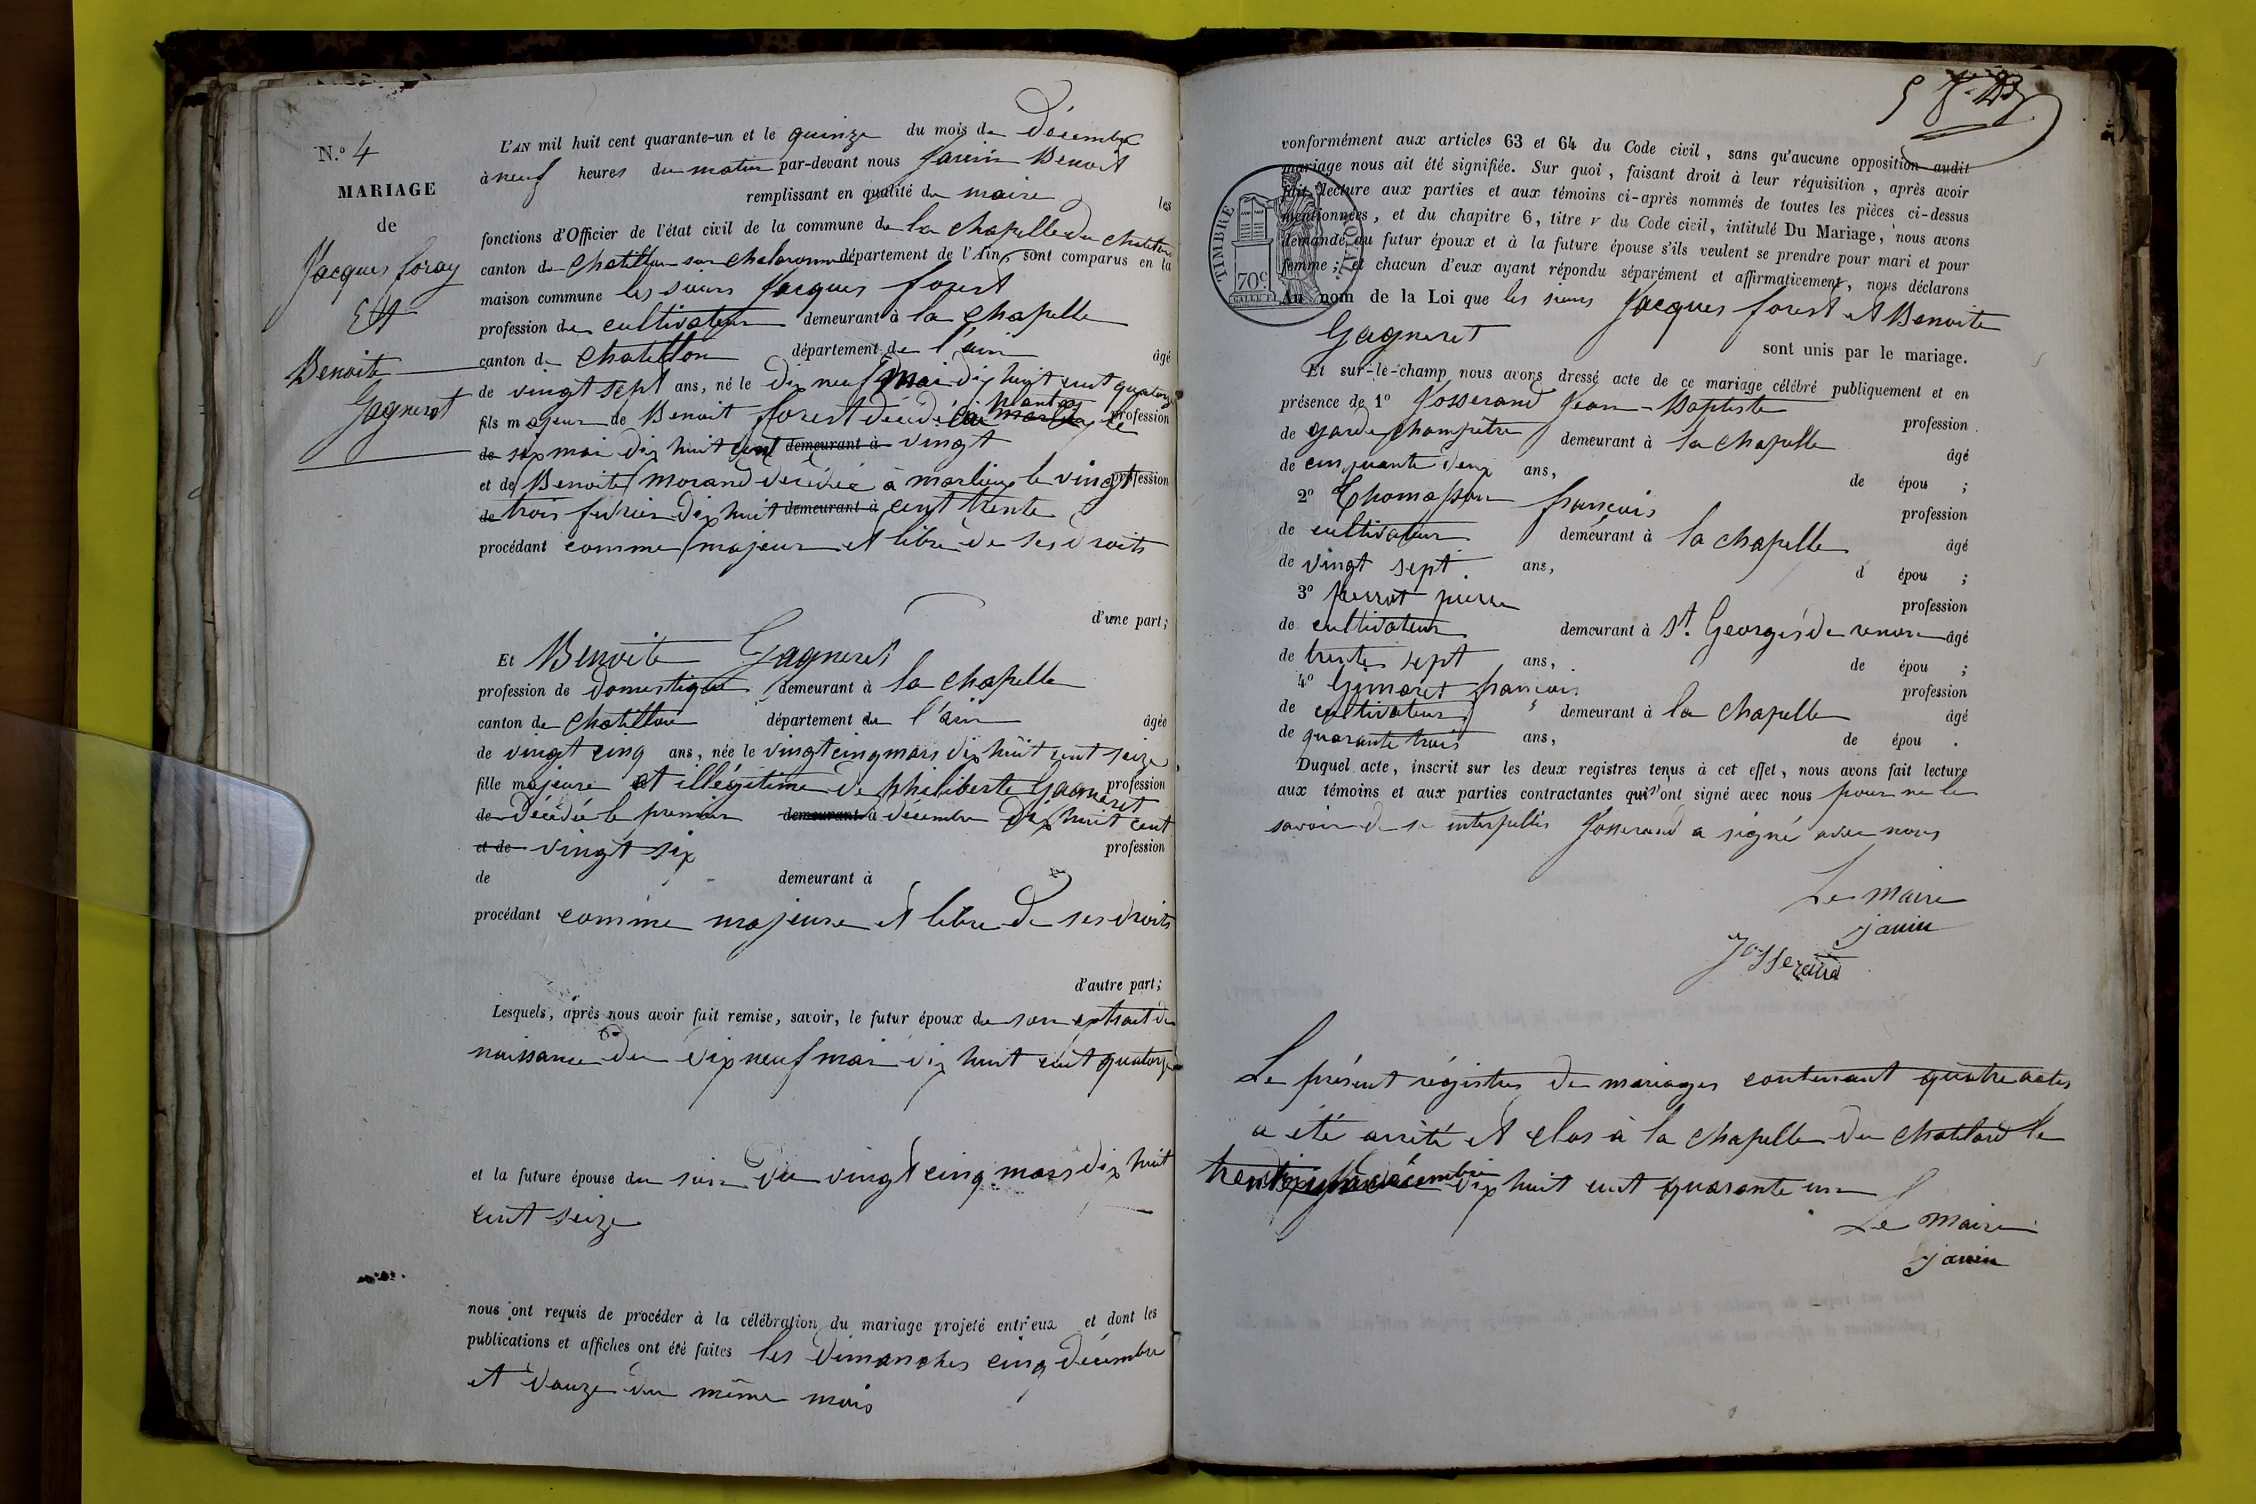 N.º 4
MARIAGE
de
Jacques foray
Et
Benoite
Gagneret
L'AN mil huit cent quarante-un et le quinze du mois de Décembre
à neuf heures du matin par-devant nous Janin Benoit
remplissant en qualité de maire les
fonctions d'Officier de l'état civil de la commune de la chapelle du chatelard
canton de Chatillon sur chalaronne département de l'Ain, sont comparus en la
maison commune les sieurs Jacques forest
profession de cultivateur demeurant à la chapelle
canton de chatillon département de l'ain âgé
de vingt sept ans, né le dix neuf mai dix huit cent quatorze
fils majeur de Benoit forest décédé profession
de six mai dix huit cent demeurant à vingt
et de Benoite morand décédée à marlieux le vingt profession
de trois fevrier dix huit demeurant à cent trente
procédant comme majeur et libre de ses droits
d'une part;
Et Benoite Gagneret
profession de domestique demeurant à la chapelle
canton de chatillon département de l'ain âgée
de vingt cinq ans, née le vingt cinq mars dix huit cent seize
fille majeure et illégitime de philiberte Gagneret profession
de décédée le premier demeurant à décembre dix huit cent
et de vingt six profession
de demeurant à
procédant comme majeure et libre de ses droits
d'autre part;
Lesquels, après nous avoir fait remise, savoir, le futur époux de son extrait de
naissance du dix neuf mai dix huit cent quatorze
et la future épouse du sien du vingt cinq mars dix huit
cent seize
nous ont requis de procéder à la célébration du mariage projeté entr'eux et dont les
publications et affiches ont été faites les dimanches cinq décembre
et douze du même mois
conformément aux articles 63 et 64 du Code civil, sans qu'aucune opposition audit
mariage nous ait été signifiée. Sur quoi, faisant droit à leur réquisition, après avoir
fait lecture aux parties et aux témoins ci-après nommés de toutes les pièces ci-dessus
mentionnées, et du chapitre 6, titre v du Code civil, intitulé Du Mariage, nous avons
demandé au futur époux et à la future épouse s'ils veulent se prendre pour mari et pour
femme; et chacun d'eux ayant répondu séparément et affirmativement, nous déclarons
Au nom de la Loi que les sieurs Jacques forest et Benoite
Gagneret
sont unis par le mariage.
TIMBRE ROYAL
70c
Et sur-le-champ nous avons dressé acte de ce mariage célébré publiquement et en
présence de 1º Josserand Jean-Baptiste
profession
de garde champêtre demeurant à la chapelle âgé
de cinquante deux ans, de épou ;
2º Thomasson francois profession
de cultivateur demeurant à la chapelle âgé
de vingt sept ans, d épou ;
3º perrot pierre profession
de cultivateur demeurant à St. Georges de renon âgé
de trente sept ans, de épou ;
4º Gimaret francois profession
de cultivateur demeurant à la chapelle âgé
de quarante trois ans, de épou .
Duquel acte, inscrit sur les deux registres tenus à cet effet, nous avons fait lecture
aux témoins et aux parties contractantes qui n'ont signé avec nous pour ne le
savoir de ce interpellés Josserand a signé avec nous
Le maire
janin
Josserand
Le présent régistre de mariages contenant quatre actes
a été arrêté et clos à la chapelle du chatelard le
décembre dix huit cent quarante un
Le maire
janin